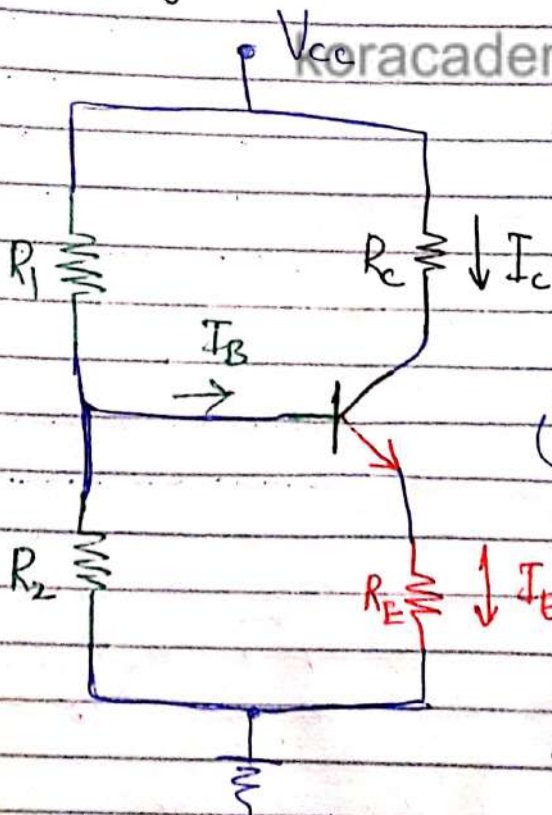 Vcc
koracadem
R1
Rc
Ic
IB
R2
RE
IE